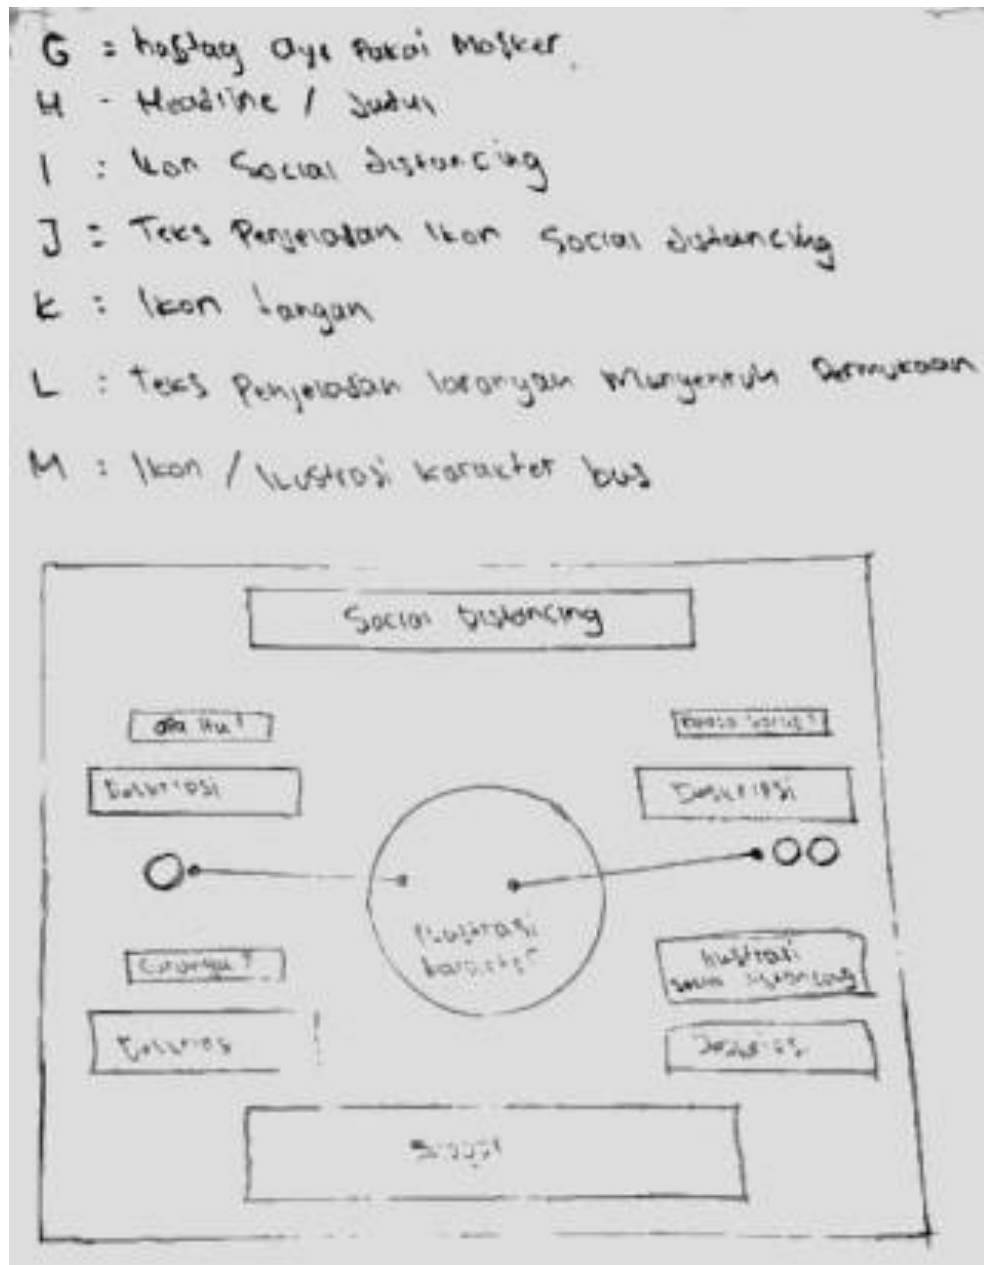 G = hastag Ayo Pakai Masker
H - Headline / Judul
I : Ikon Social distancing
J = Teks Penjelasan Ikon Social distancing
K : Ikon tangan
L : Teks Penjelasan larangan Menyentuh Permukaan
M : Ikon / Ilustrasi karakter bus
Social Distancing
apa itu?
Deskripsi
Deskripsi
Ilustrasi
karakter
Caranya?
Ilustrasi
Social distancing
Deskripsi
Deskripsi